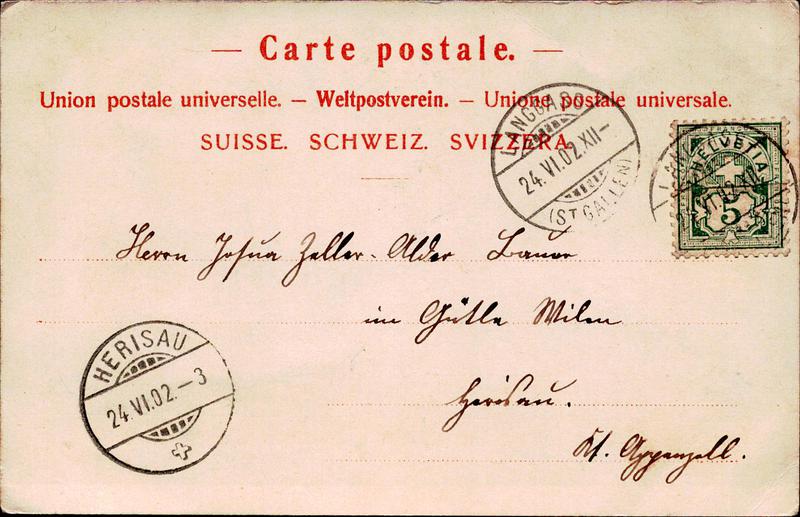 — Carte postale. —
Union postale universelle. — Weltpostverein. — Unione postale universale.
SUISSE. SCHWEIZ. SVIZZERA.
LANGGASS
24.VI.02.XII–
(ST GALLEN)
HELVETIA
5
Herrn Josua Zeller-Alder Bauer
im Gütle Wilen
Herisau.
Kt. Appenzell.
HERISAU
24.VI.02.–3